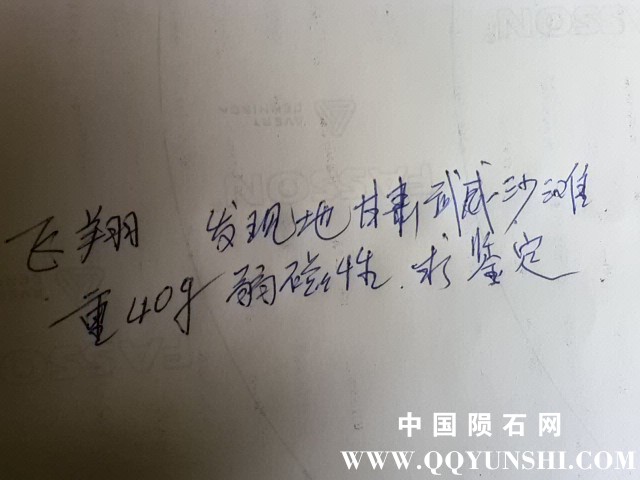 飞翔 发现地甘肃武威沙滩
重40g 弱磁性.求鉴定
中国陨石网
WWW.QQYUNSHI.COM